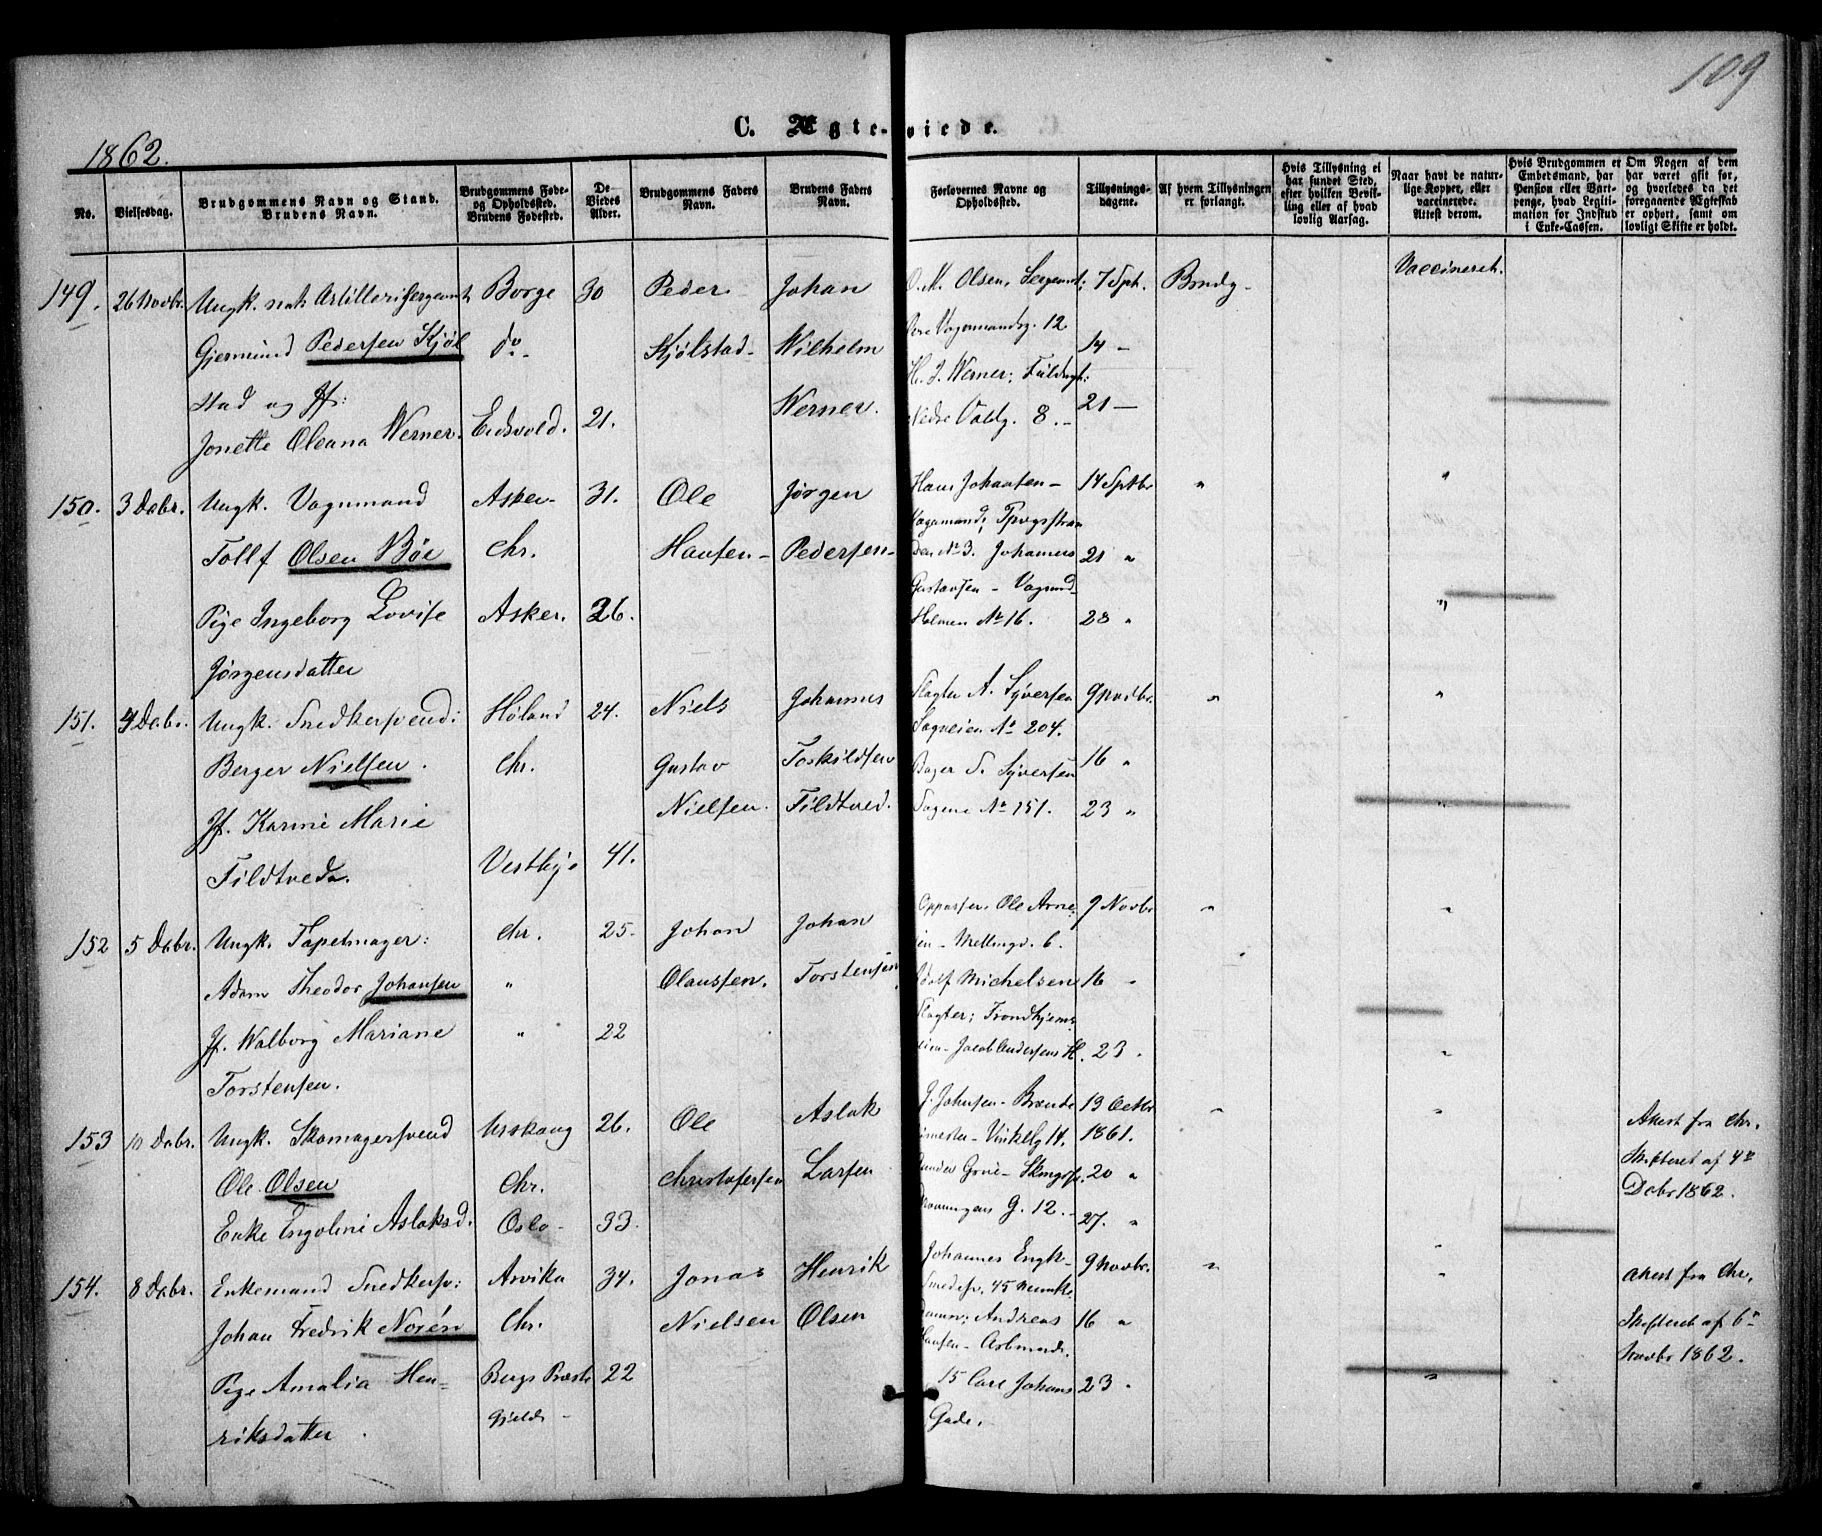 109
C. Ægte-viede.
1862.
No.
Vielsesdag.
Brudgommens Navn og Stand.
Brudens Navn.
Brudgommens Føde-
og Opholdssted.
Brudens Fødested.
De
Viedes
Alder.
Brudgommens Faders
Navn.
Brudens Faders
Navn.
Forlovernes Navne og
Opholdssted.
Tillysnings-
dagene.
Af hvem Tillysningen
er forlangt.
Hvis Tillysning ei
har fundet Sted,
efter hvilken Bevil-
ling eller af hvad
lovlig Aarsag.
Naar havt de natur-
lige Kopper, eller
vaccinerede.
Attest derom.
Hvis Brudgommen er
Embedsmand, har
Pension eller Vart-
penge, hvad Legiti-
mation for Indskud
i Enke-Cassen.
Om Nogen af dem
har været gift før,
og hvorledes da det
foregaaende Ægteskab
er ophørt, samt om
lovligt Skifte er holdt.
149. 26 Novbr. Ungk. Artillerisergeant Borge 30 Peder Johan O. M. Olsen, Sergeant; 7 Sptb. Brudg. Vaccineret.
Gjermund Pedersen Kjøl do Kjølstad Wilhelm 12 14 —
stad og Jf: Werner. H. J. Werner; 21 —
Jonette Oleana Werner. Eidsvold. 21. Nedre Voldg. 8.
150. 3 Decbr. Ungk. Vognmand Asker 31. Ole Jørgen Hans Johansen 14 Sptbr. " "
Tollf Olsen Bøe Chr. Hansen Pedersen No 3. Johannes 21 "
Pige Ingeborg Lovise Asker. 26. Gustavsen - Vogmd Holmen No 16. 28 " "
Jørgensdatter
151. 4 Decbr. Ungk. Snedkersvend: Høland 24. Niels Johannes Slagter A. Syversen 9 Novbr. " "
Sagveien No 204.
Berger Nielsen. Chr. Gustav Toskildsen Bager S. Syversen 16 "
Jf. Karine Marie Nielsen. Tildtved. Sagene No 151. 23 " "
Tildtved. Vestbye 41.
152 5 Decbr. Ungk. Tapetmager: Chr. 25. Johan Johan Ole Arne 9 Novbr. " "
Møllergd. 6.
Adam Theodor Johansen " Olaussen. Torstensen Adolf Michelsen 16 "
Jf. Walborg Mariane " 22 Slagter; Trondhjems
Torstensen. veien - Jacob Andersens H. 23. "
153 10 Decbr. Ungk. Skomagersvend Urskoug 26. Ole Aslak J. Johnsen - 13 Octbr. " " Attest fra Chr.
1861.
Ole Olsen Chr. Christofersen Larsen 20 " Skifteret af 4de
Enke Engoline Aslaksd. Oslo 33. G. 12. 27. " " Decbr 1862.
154. 8 Decbr. Enkemand Snedkersv: Arvika 34. Jonas Henrik Johannes Engh 9 Novbr. " " Attest fra Chr.
Snedsv. 45 Munke
Johan Fredrik Norén Chr. Nielsen Olsen damm; Andreas 16 " Skifteret af 6te
Hansen - Arbmd.
Pige Amalia Hen- Bergs Præste 22 15 Carl Johans 23 " " Novbr 1862.
riksdatter. Gjeld Gade.